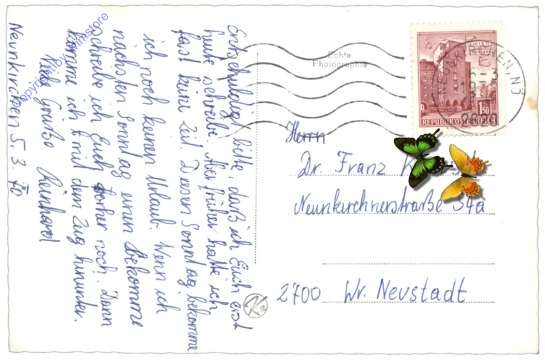 Entschuldige bitte, daß ich Euch erst
heute schreibe. Aber früher hatte ich
fast keine Zeit. Diesen Sonntag bekomme
ich noch keinen Urlaub. Wenn ich
nächsten Sonntag einen bekomme
schreibe ich Euch vorher noch. Dann
komme ich mit dem Zug hinunter.
Viele Grüße Reinhard
Neunkirchen 5.3.70
Echte
Photographie
REPUBLIK ÖSTERREICH
1.50
Herrn
Dr. Franz
Neunkirchnerstraße 34a
2700 Wr. Neustadt